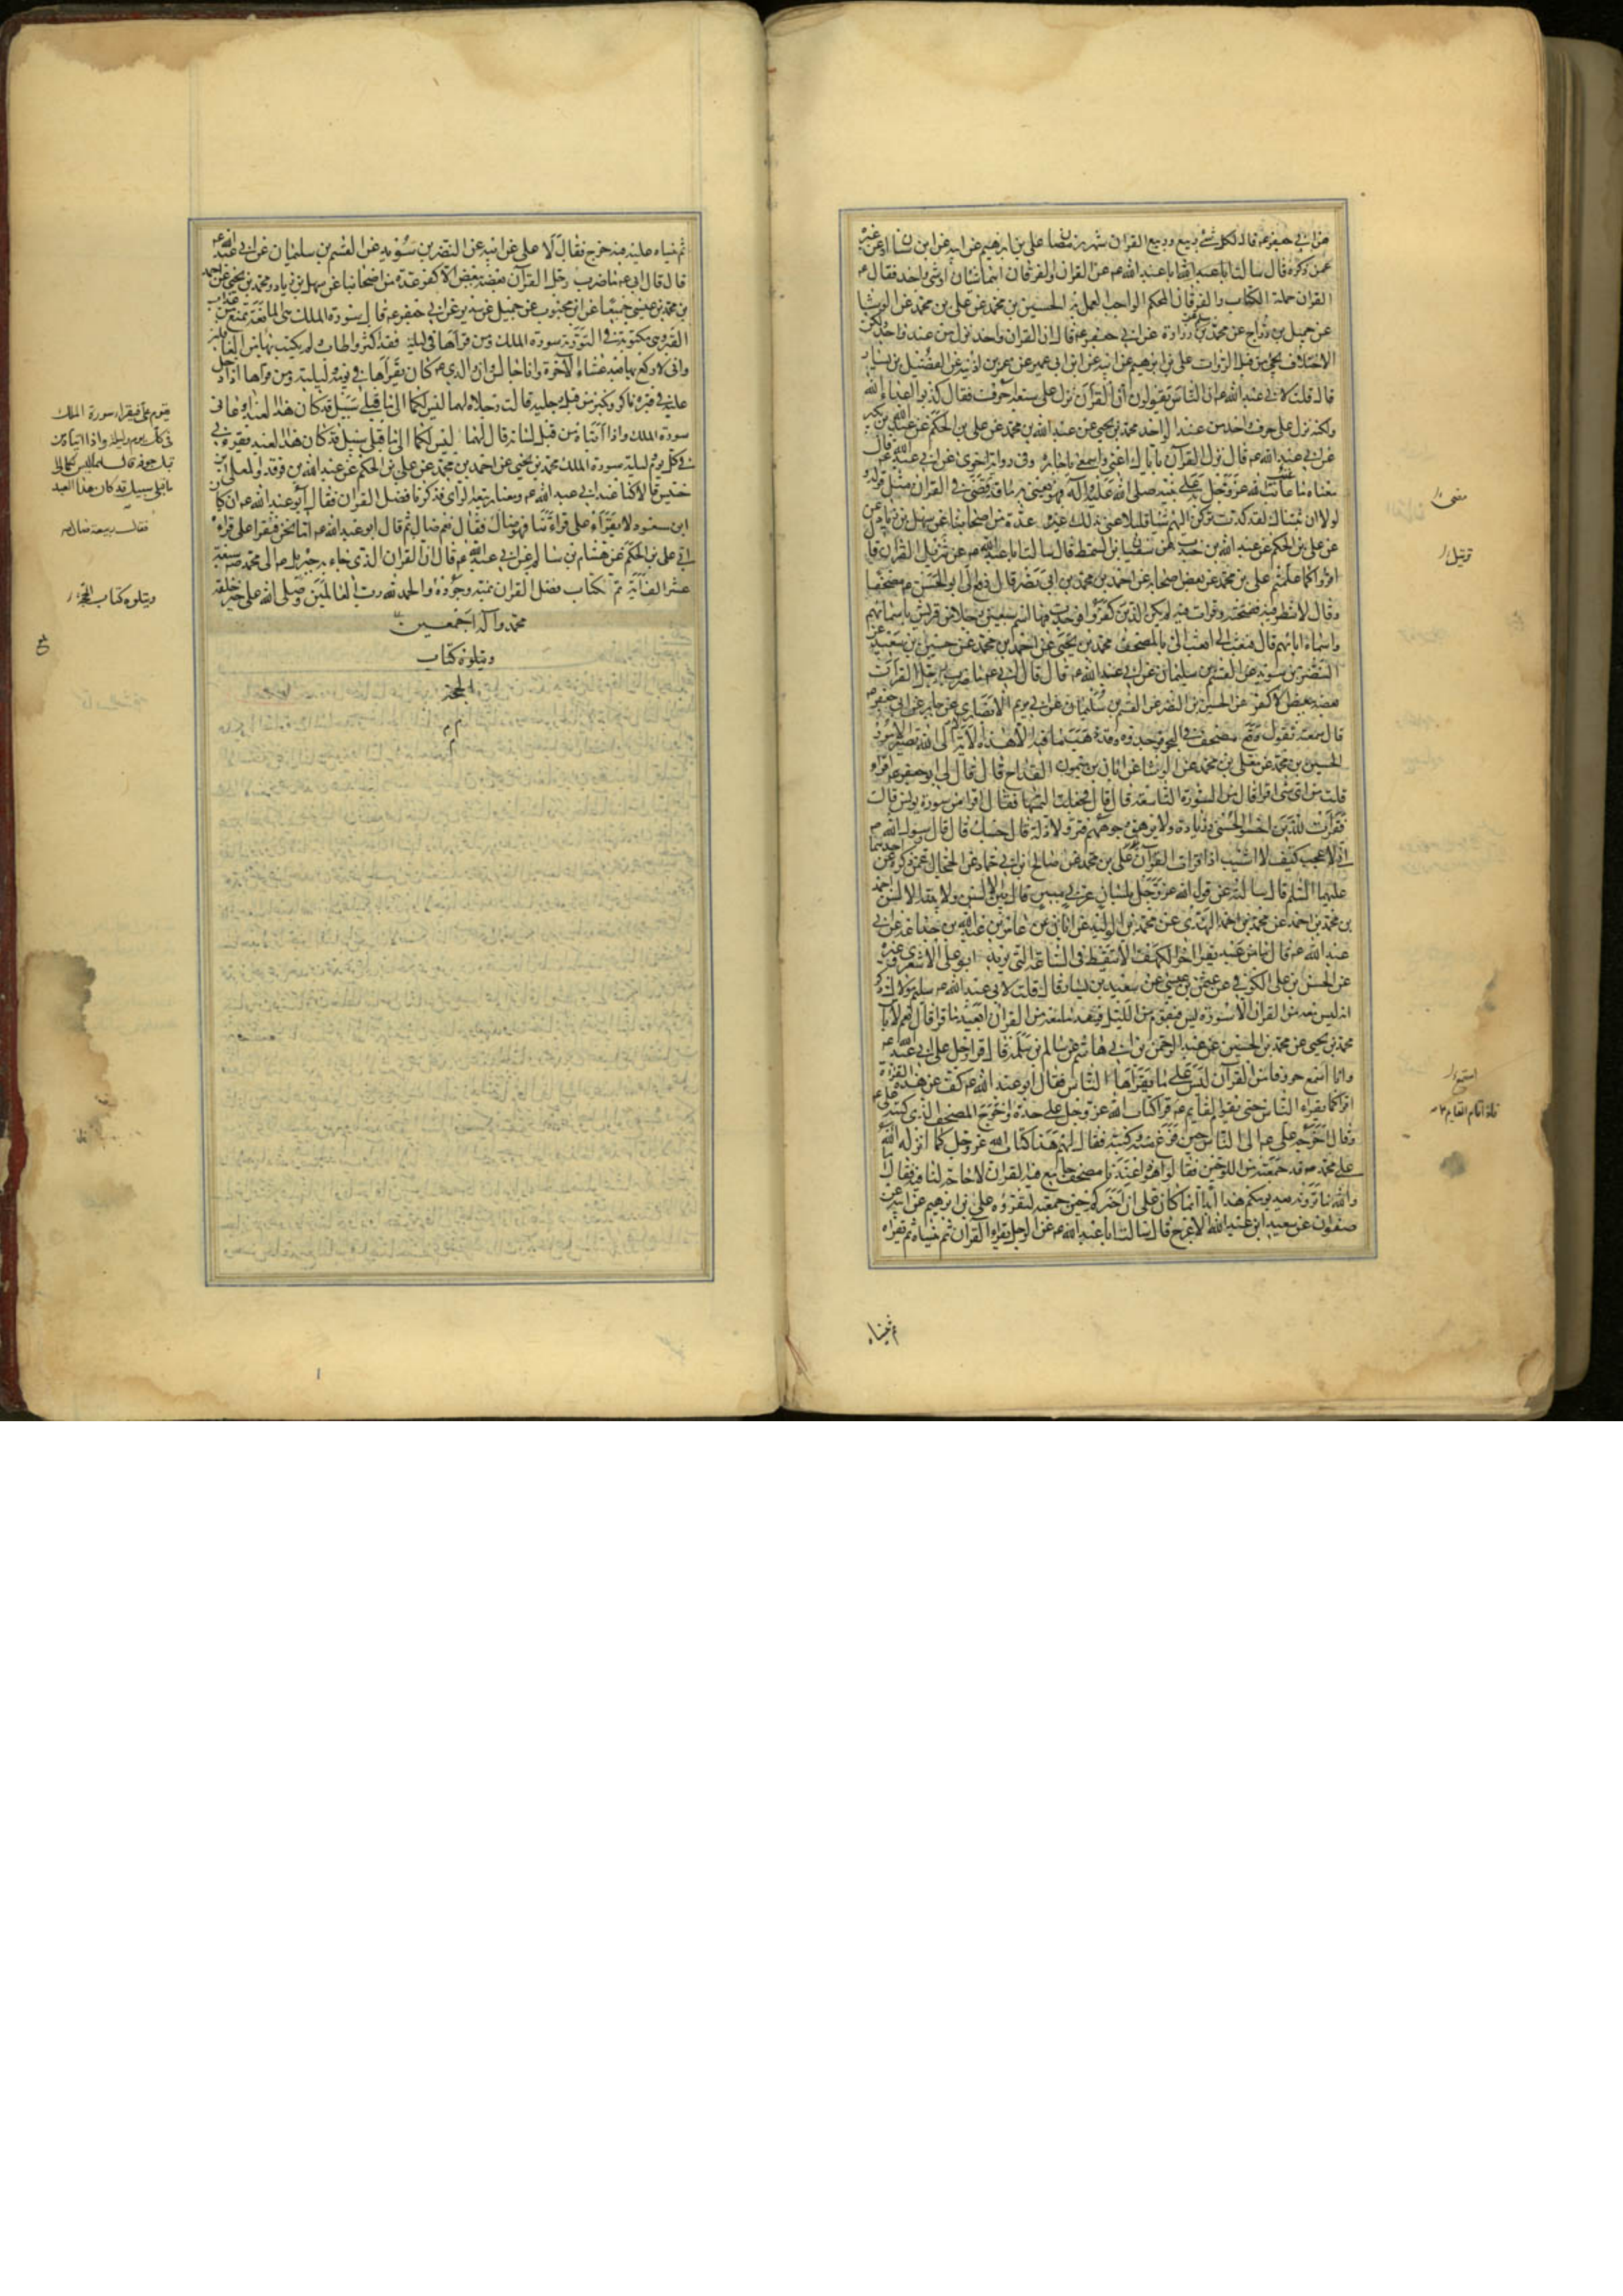 عن ابى جعفر ع قال لكل شئ ربيع وربيع القران شهر رمضان على بن ابرهيم عن ابيه عن ابن سنان او عن غيره
عمن ذكره قال سالت ابا عبد الله ع عن القران والفرقان اهما شيئان او شئ واحد فقال ع
القران جملة الكتاب والفرقان المحكم الواجب العمل به الحسين بن محمد عن على بن محمد عن الوشا
عن جميل بن دراج عن محمد بن مسلم عن زرارة عن ابى جعفر ع قال ان القران واحد نزل من عند واحد ولكن
الاختلاف يجئ من قبل الرواة على بن ابرهيم عن ابيه عن ابن ابى عمير عن عمر بن اذينة عن الفضيل بن يسار
قال قلت لابى عبد الله ع ان الناس يقولون ان القرآن نزل على سبعة احرف فقال كذبوا اعداء الله
ولكنه نزل على حرف واحد من عند الواحد محمد بن يحيى عن عبد الله بن محمد عن على بن الحكم عن عبد الله بن بكير
عن ابى عبد الله ع قال نزل القرآن باياك اعنى واسمعى يا جارة وفى رواية اخرى عن ابى عبد الله ع قال
معناه ما عاتب الله عز وجل به على نبيه صلى الله عليه وآله فهو يعنى به ما قد مضى فى القران مثل قوله
ولولا ان ثبتناك لقد كدت تركن اليهم شيئا قليلا عنى بذلك غيره عدة من اصحابنا عن سهل بن زياد
عن على بن الحكم عن عبد الله بن جندب عن سفيان بن السمط قال سالت ابا عبد الله ع عن تنزيل القرآن قال
اقرؤا كما علمتم على بن محمد عن بعض اصحابه عن احمد بن محمد بن ابى نصر قال دفع الى ابو الحسن ع مصحفا
وقال لا تنظر فيه ففتحته وقرات فيه لم يكن الذين كفروا فوجدت فيها اسم سبعين رجلا من قريش باسمائهم
واسماء ابائهم قال فبعث الى ابعث الى بالمصحف محمد بن يحيى عن احمد بن محمد عن حسين بن سعيد عن
النضر بن سويد عن القسم بن سليمان عن ابى عبد الله ع قال قال ابى ع ما ضرب رجل القرآن
بعضه ببعض الا كفر عنه عن الحسين بن النضر عن القسم بن سليمان عن ابى مريم الانصارى عن جابر عن ابى جعفر ع
قال سمعته يقول وقع مصحف فى البحر فوجدوه وقد ذهب ما فيه الا هذه الاية الا الى الله تصير الامور
الحسين بن محمد عن معلى بن محمد عن الوشا عن ابان بن ميمون القداح قال قال لى ابو جعفر ع اقرا
قلت من اى شئ اقرا قال من السورة التاسعة قال فجعلت التمسها فقال اقرا من سورة يونس قال
فقرات للذين احسنوا الحسنى وزيادة ولا يرهق وجوههم قتر ولا ذلة قال حسبك قال قال رسول الله ص
انى لاعجب كيف لا اشيب اذا قرات القرآن على بن محمد عن صالح بن ابى حماد عن الحجال عمن ذكره عن احدهما
عليهما السلم قال سالته عن قول الله عز وجل بلسان عربى مبين قال يبين الالسن ولا تبينه الالسن احمد
بن محمد بن احمد عن محمد بن احمد النهدى عن محمد بن الوليد عن ابان عن عامر بن عبد الله بن جذاعة عن ابى
عبد الله ع قال ما من عبد يقرا اخر الكهف الا تيقظ فى الساعة التى يريد ابو على الاشعرى وغيره
عن الحسن بن على الكوفى عن عثمن بن عيسى عن سعيد بن يسار قال قلت لابى عبد الله ع سليم مولاك ذكر
انه ليس معه من القران الا سورة يس فيقوم من الليل فينفد ما معه من القران ايعيد ما قرا قال نعم لا باس
محمد بن يحيى عن محمد بن الحسين عن عبد الرحمن بن ابى هاشم عن سالم بن سلمة قال قرا رجل على ابى عبد الله ع
وانا اسمع حروفا من القرآن ليس على ما يقراها الناس فقال ابو عبد الله ع كف عن هذه القراءة
اقرا كما يقراء الناس حتى يقوم القايم ع قرا كتاب الله عز وجل على حده واخرج المصحف الذى كتبه على ع
وقال اخرجه على ع الى الناس حين فرغ منه وكتبه فقال لهم هذا كتاب الله عز وجل كما انزله الله
على محمد ص قد جمعته من اللوحين فقالوا هو ذا عندنا مصحف جامع فيه القران لا حاجة لنا فيه فقال اما
والله ما ترونه بعد يومكم هذا ابدا انما كان على ان اخبركم حين جمعته لتقرؤه على بن ابرهيم عن ابيه عن
صفوان عن سعيد بن عبد الله الاعرج قال سالت ابا عبد الله ع عن الرجل يقرا القرآن ثم ينساه ثم يقراه
ثم ينساه
مضى
تنزيل
استمع
فاذا قام القايم ع
ثم ينساه عليه فيه حرج فقال لا على عن ابيه عن النضر بن سويد عن القسم بن سليمان عن ابى عبد الله ع
قال قال ابى ع ما ضرب رجل القرآن بعضه ببعض الا كفر عدة من اصحابنا عن سهل بن زياد ومحمد بن يحيى عن احمد
بن محمد بن عيسى جميعا عن ابن محبوب عن جميل عن سدير عن ابى جعفر ع قال سورة الملك هى المانعة تمنع من عذاب
القبر وهى مكتوبة فى التورية سورة الملك ومن قراها فى ليلة فقد اكثر واطاب ولم يكتب بها من الغافلين
وانى لاركع بها بعد عشاء الآخرة وانا جالس وان والدى ع كان يقراها فى يومه وليلته ومن قراها اذا دخل
عليه فى قبره ناكر ونكير من قبل رجليه قالت رجلاه لهما ليس لكما الى ما قبلى سبيل قد كان هذا العبد
سورة الملك واذا اتياه من قبل لسانه قال لهما ليس لكما الى ما قبلى سبيل قد كان هذا العبد يقرء بى
فى كل يوم وليلة سورة الملك محمد بن يحيى عن احمد بن محمد عن على بن الحكم عن عبد الله بن فرقد والمعلى بن
خنيس قالا كنا عند ابى عبد الله ع ومعنا ربيعة الراى فذكرنا فضل القران فقال ابو عبد الله ع ان كان
ابن مسعود لا يقراء على قراءتنا فهو ضال فقال نعم ضال ثم قال ابو عبد الله ع اما نحن فنقرا على قراءة
ابى على بن الحكم عن هشام بن سالم عن ابى عبد الله ع قال ان القران الذى جاء به جبريل ع الى محمد ص سبعة
عشر الف آية تم كتاب فضل القران بمنه وجوده والحمد لله رب العالمين وصلى الله على خير خلقه
محمد وآله اجمعين
ويتلوه كتاب
العشرة
يقوم على فيقرا سورة الملك
فى كل يوم وليلة واذا اتياه من
قبل جوفه قال لهما ليس لكما الى
ما قبلى سبيل قد كان هذا العبد
فقال ربيعة ضال
ويتلوه كتاب